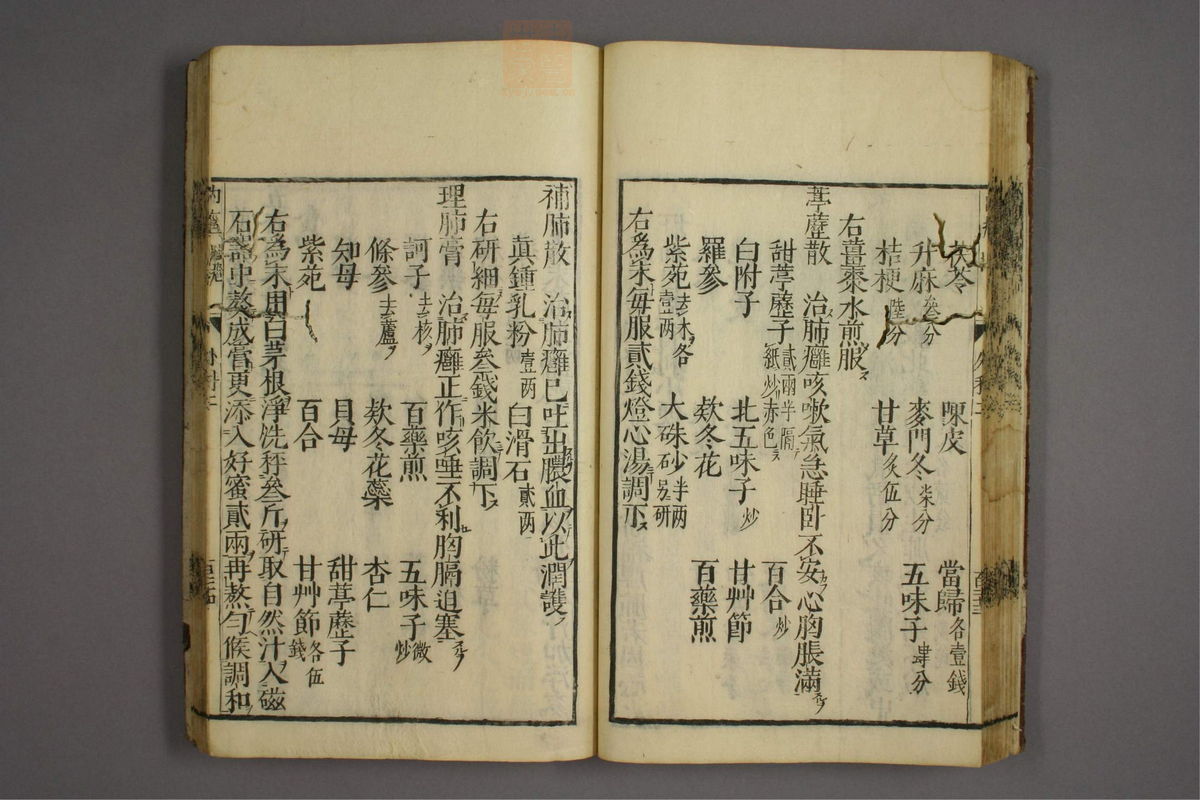 茯苓 陳皮 當歸各壹錢
升麻叁分 麥門冬柒分 五味子肆分
桔梗陸分 甘草炙伍分
右薑棗水煎服
葶藶散 治肺癰咳嗽氣急睡臥不安心胸脹滿
甜葶藶子貳兩半隔紙炒赤色 百合炒
白附子 北五味子炒 甘艸節
羅參 款冬花 百藥煎
紫苑去木各壹两 大硃砂半两另研
右爲末每服貳錢燈心湯調下
補肺散 治肺癰已吐出膿血以此潤護
真鍾乳粉壹两 白滑石貳两
右研細每服叁錢米飲調下
理肺膏 治肺癰正作咳唾不利胸膈迫塞
訶子去核 百藥煎 五味子微炒
條參去蘆 款冬花蘂 杏仁
知母 貝母 甜葶藶子
紫苑 百合 甘艸節各伍錢
右爲末用白茅根淨洗秤叁斤研取自然汁入磁
石器中熬成膏更添入好蜜貳兩再熬勻候調和